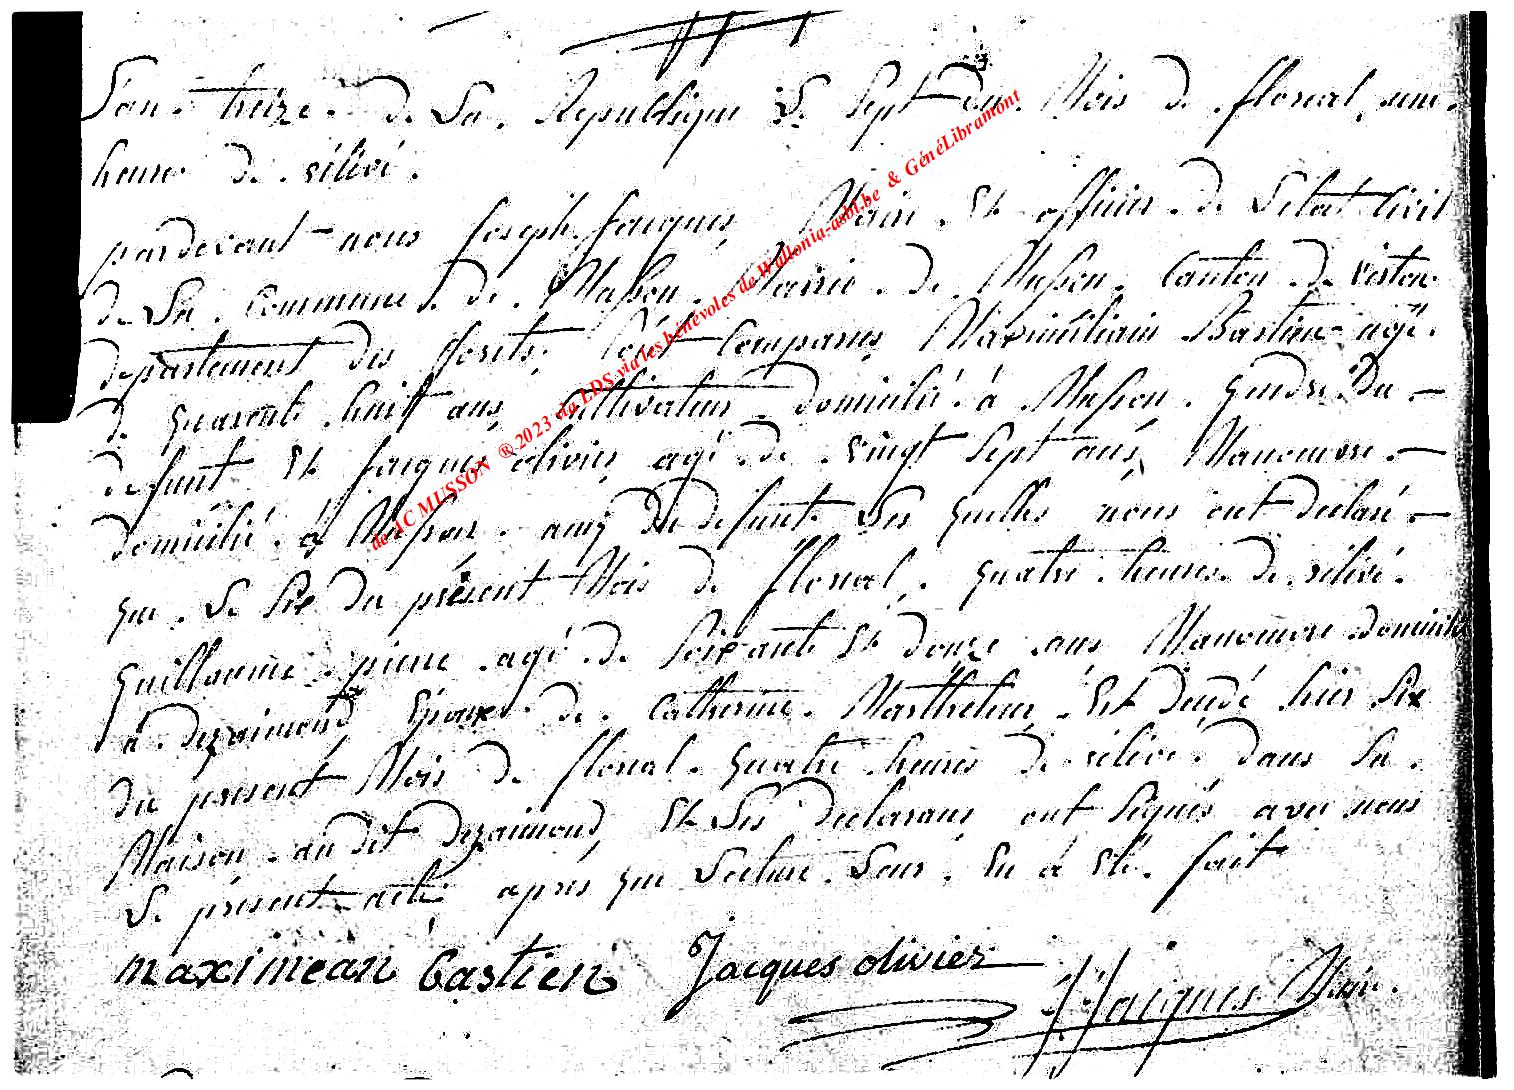 L'an treize de La Republique Le Sept du Mois de floreal une
heure de rélivé.
pardevant nous Joseph Jacques Mair Et officier de L'etat Civil
de La Commune de Musson, Mairie de Musson Canton de virton
departement des forets, sont Comparus Maximiliain Bastien agé
de quarente huit ans Cultivateur domicilié à Musson gendre Du
defunt Et Jacques olivier agé de vingt Sept ans Manouvre
domicilié à Musson amy Du defunt Les quelles nous ont declaré
que Le Six Du présent Mois de floreal, quatre heures de rélivé
guillaume pierre agé de Soixante Et douze ans Manouvre domicilié
à dezaimond, Epoux de Catherine Marthelin, Est decedé hier Six
du present Mois de floreal quatre heures de relivé dans Sa
Maison au dit dezaimond, Et Les declarans ont Signés avec nous
Le présent acte après que Lecture Leur En à Eté fait
maximean Bastien Jacques olivier
JJacques Mair.
de AC MUSSON ® 2023 via LDS via les bénévoles de Wallonia-asbl.be & GénéLibramont